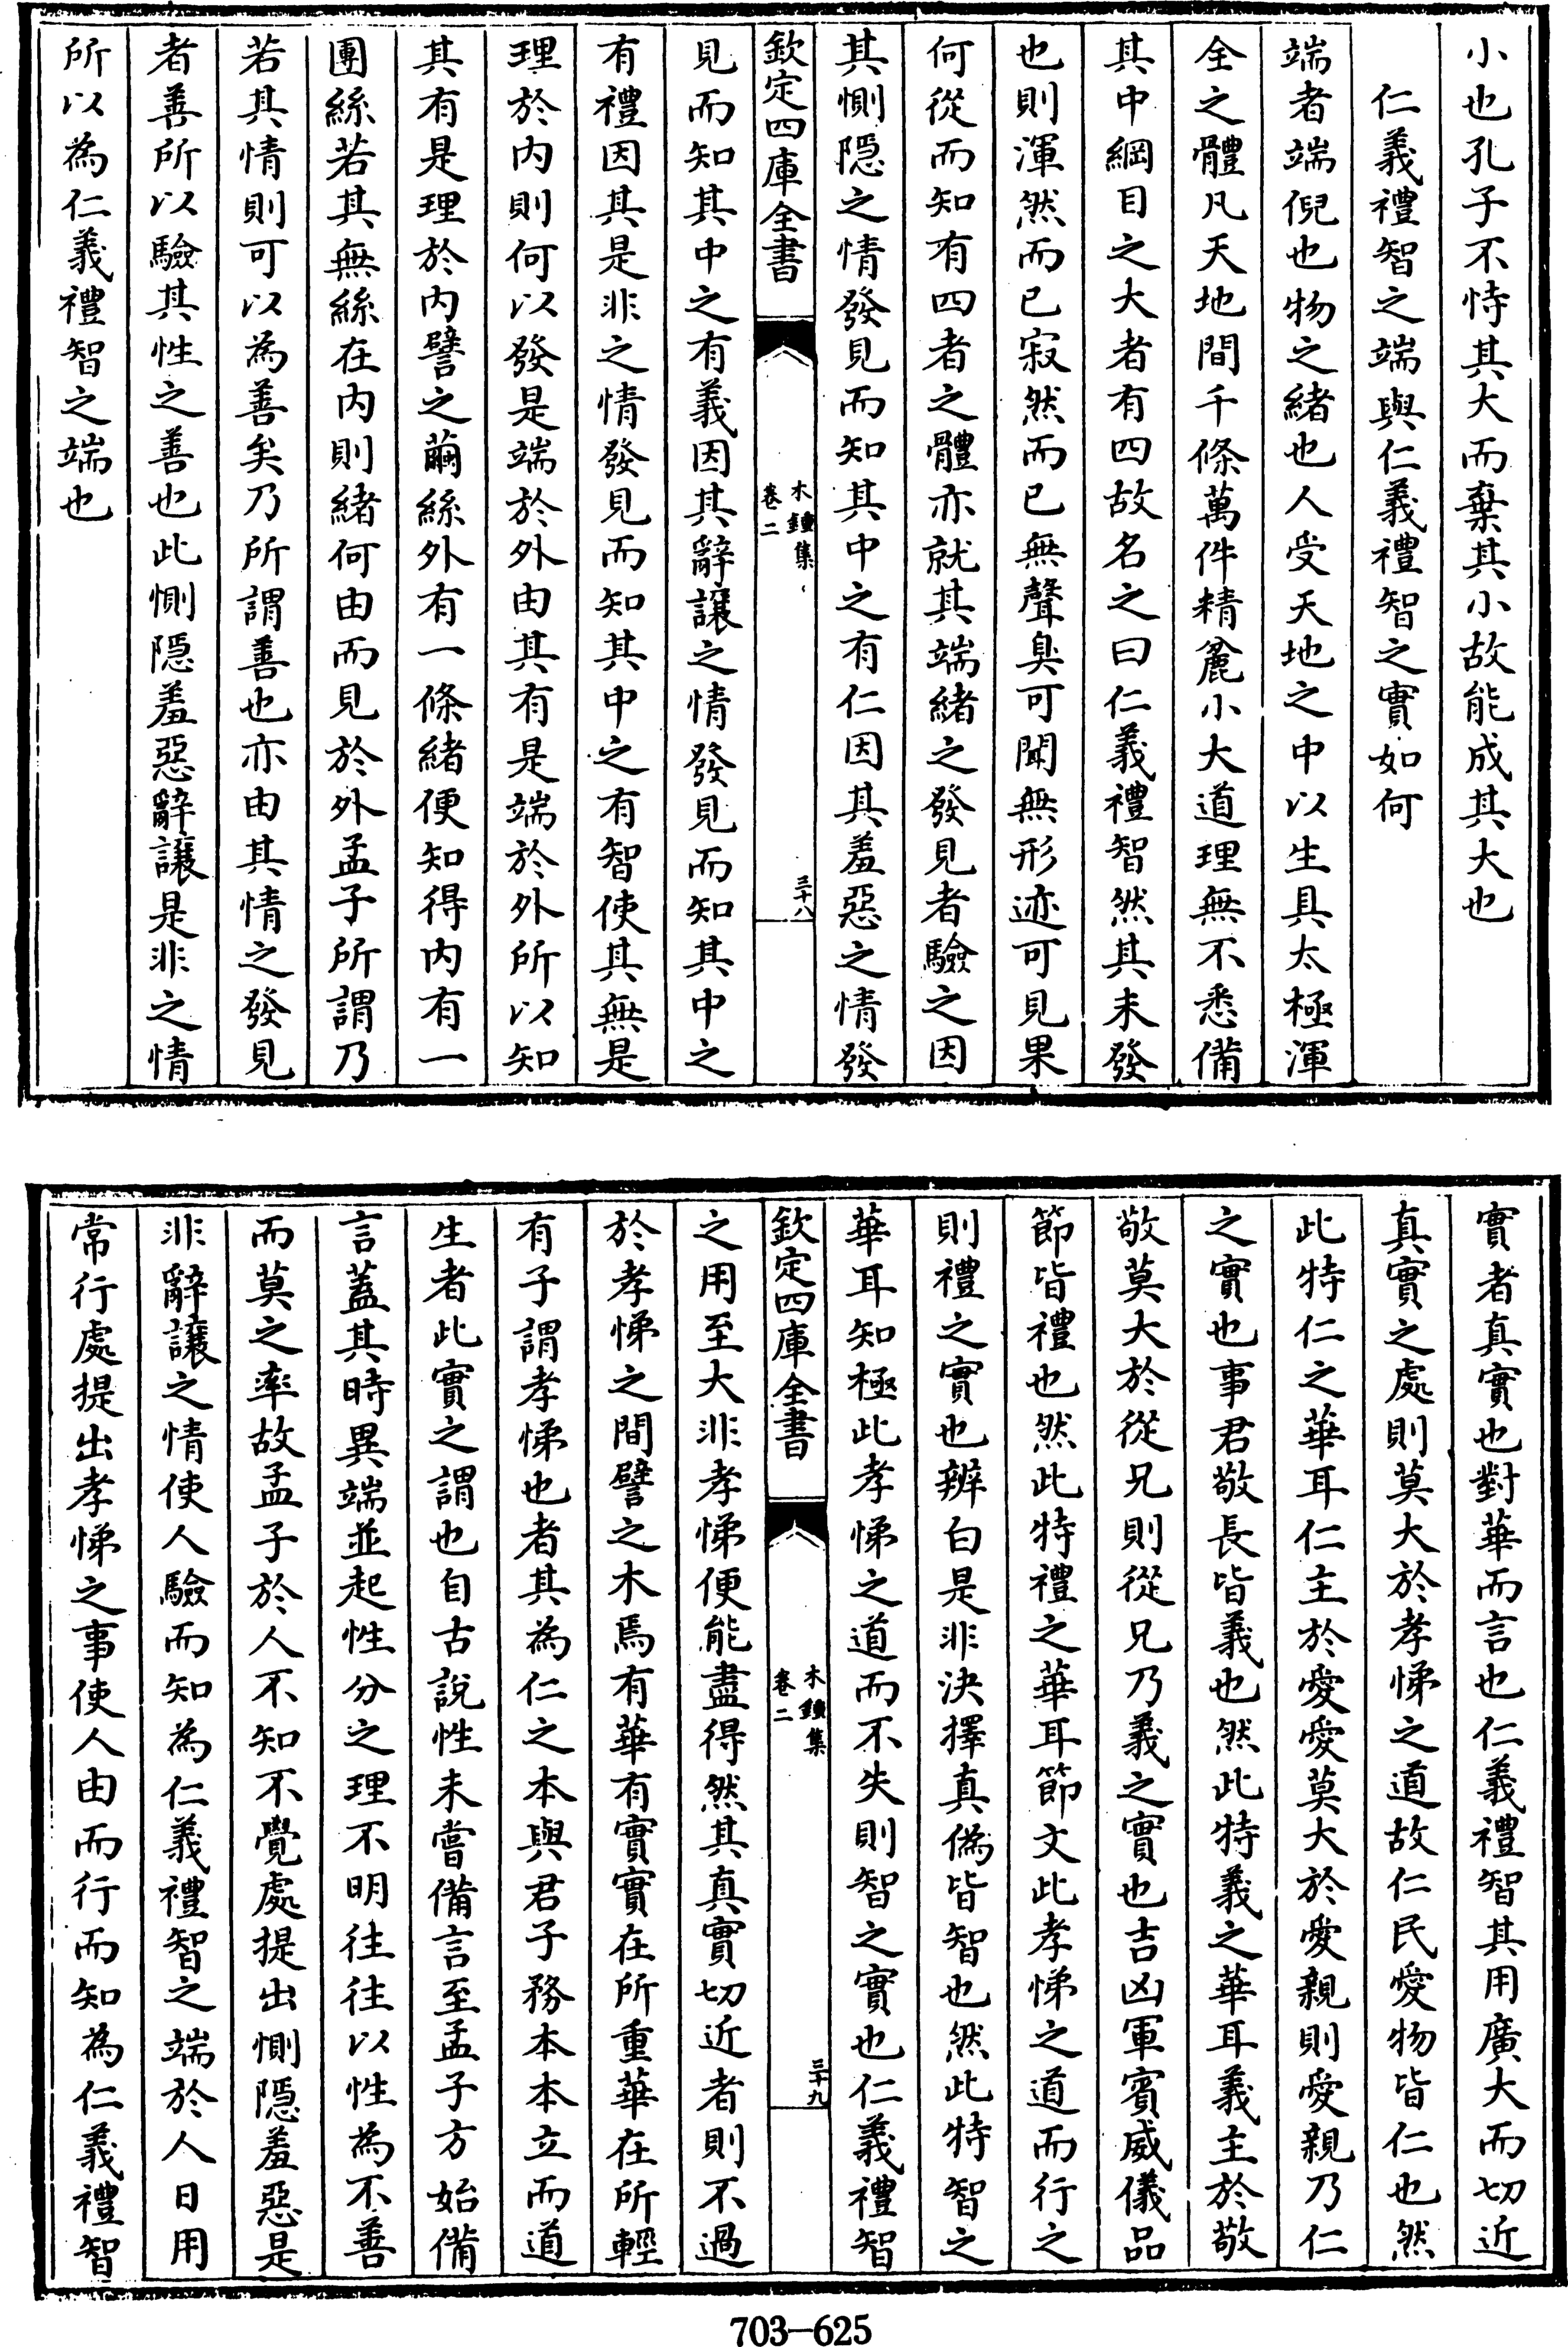 小也孔子不恃其大而棄其小故能成其大也
仁義禮智之端與仁義禮智之實如何
端者端倪也物之緒也人受天地之中以生具太極渾
全之體凡天地間千條萬件精麄小大道理無不悉備
其中綱目之大者有四故名之曰仁義禮智然其未發
也則渾然而已寂然而已無聲臭可聞無形迹可見果
何從而知有四者之體亦就其端緒之發見者驗之因
其惻隠之情發見而知其中之有仁因其羞惡之情發
欽定四庫全書
木鍾集
卷二
三十八
見而知其中之有義因其辭讓之情發見而知其中之
有禮因其是非之情發見而知其中之有智使其無是
理於内則何以發是端於外由其有是端於外所以知
其有是理於内譬之繭絲外有一條緒便知得内有一
團絲若其無絲在内則緒何由而見於外孟子所謂乃
若其情則可以為善矣乃所謂善也亦由其情之發見
者善所以驗其性之善也此惻隠羞惡辭讓是非之情
所以為仁義禮智之端也
實者真實也對華而言也仁義禮智其用廣大而切近
真實之處則莫大於孝悌之道故仁民愛物皆仁也然
此特仁之華耳仁主於愛愛莫大於愛親則愛親乃仁
之實也事君敬長皆義也然此特義之華耳義主於敬
敬莫大於從兄則從兄乃義之實也吉凶軍賓威儀品
節皆禮也然此特禮之華耳節文此孝悌之道而行之
則禮之實也辨白是非決擇真偽皆智也然此特智之
華耳知極此孝悌之道而不失則智之實也仁義禮智
欽定四庫全書
木鍾集
卷二
三十九
之用至大非孝悌便能盡得然其真實切近者則不過
於孝悌之間譬之木焉有華有實實在所重華在所輕
有子謂孝悌也者其為仁之本與君子務本本立而道
生者此實之謂也自古說性未嘗備言至孟子方始備
言蓋其時異端並起性分之理不明往往以性為不善
而莫之率故孟子於人不知不覺處提出惻隠羞惡是
非辭讓之情使人驗而知為仁義禮智之端於人日用
常行處提出孝悌之事使人由而行而知為仁義禮智
703-625